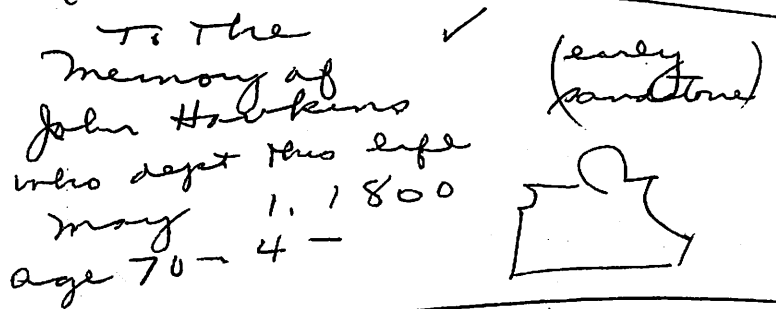 To The
Memory of
John Hawkins
who dept this life
May 1, 1800
age 70 - 4 -
(early
sandstone)